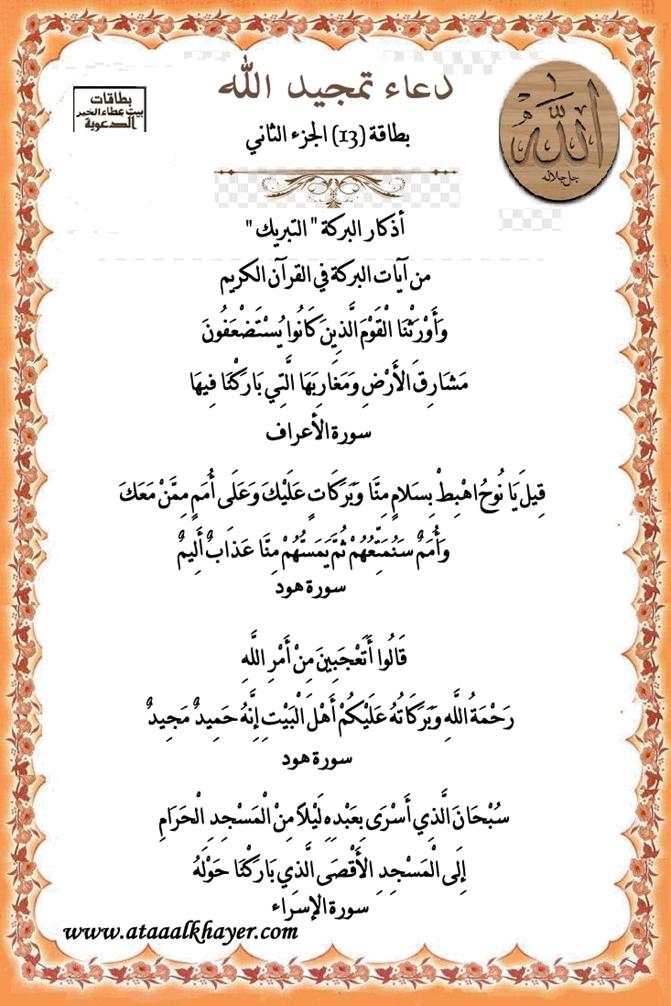 دعاء تمجيد الله
بطاقات
بيت عطاء الخير
الدعوية
الله
جل جلاله
بطاقة (13) الجزء الثاني
أذكار البركة " التبريك "
من آيات البركة في القرآن الكريم
وَأَوْرَثْنَا الْقَوْمَ الَّذِينَ كَانُوا يُسْتَضْعَفُونَ
مَشَارِقَ الْأَرْضِ وَمَغَارِبَهَا الَّتِي بَارَكْنَا فِيهَا
سورة الأعراف
قِيلَ يَا نُوحُ اهْبِطْ بِسَلَامٍ مِنَّا وَبَرَكَاتٍ عَلَيْكَ وَعَلَى أُمَمٍ مِمَّنْ مَعَكَ
وَأُمَمٌ سَنُمَتِّعُهُمْ ثُمَّ يَمَسُّهُمْ مِنَّا عَذَابٌ أَلِيمٌ
سورة هود
قَالُوا أَتَعْجَبِينَ مِنْ أَمْرِ اللَّهِ
رَحْمَةُ اللَّهِ وَبَرَكَاتُهُ عَلَيْكُمْ أَهْلَ الْبَيْتِ إِنَّهُ حَمِيدٌ مَجِيدٌ
سورة هود
سُبْحَانَ الَّذِي أَسْرَى بِعَبْدِهِ لَيْلًا مِنْ الْمَسْجِدِ الْحَرَامِ
إِلَى الْمَسْجِدِ الْأَقْصَى الَّذِي بَارَكْنَا حَوْلَهُ
سورة الإسراء
www.ataaalkhayer.com